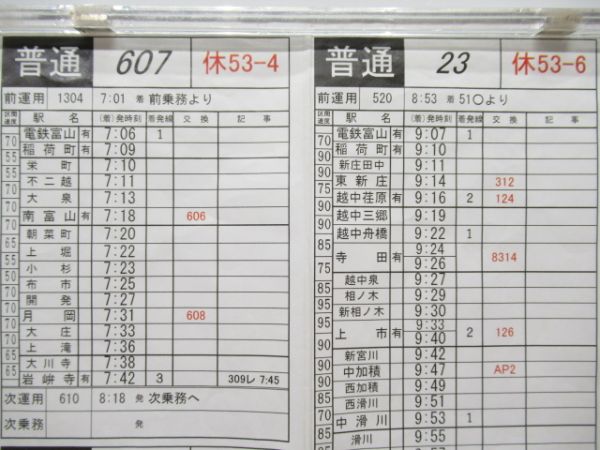 普通 607 休53-4
前運用 1304 7:01 着 前乗務より
区間速度 駅名 (着)発時刻 着発線 交換 記事
電鉄富山 有 7:06 1
70
稲荷町 有 7:09
55
栄町 7:10
55
不二越 7:11
70
大泉 7:13
70
南富山 有 7:18 606
70
朝菜町 7:20
65
上堀 7:22
55
小杉 7:23
50
布市 7:25
70
開発 7:27
70
月岡 7:31 608
70
大庄 7:33
70
上滝 7:36
65
大川寺 7:38
65
岩峅寺 有 7:42 3 309レ 7:45
次運用 610 8:18 発 次乗務へ
次乗務 発
普通 23 休53-6
前運用 520 8:53 着 51〇より
区間速度 駅名 (着)発時刻 着発線 交換 記事
電鉄富山 有 9:07 1
70
稲荷町 有 9:10
90
新庄田中 9:11
90
東新庄 9:14 312
75
越中荏原 有 9:16 2 124
90
越中三郷 9:19
90
越中舟橋 9:22 1
85
寺田 有 9:24 9:26 8314
75
越中泉 9:27
90
相ノ木 9:29
95
新相ノ木 9:30
95
上市 有 9:33 9:40 2 126
90
新宮川 9:42
90
中加積 9:47 AP2
90
西加積 9:49
90
西滑川 9:51
70
中滑川 9:53 1
85
滑川 9:55